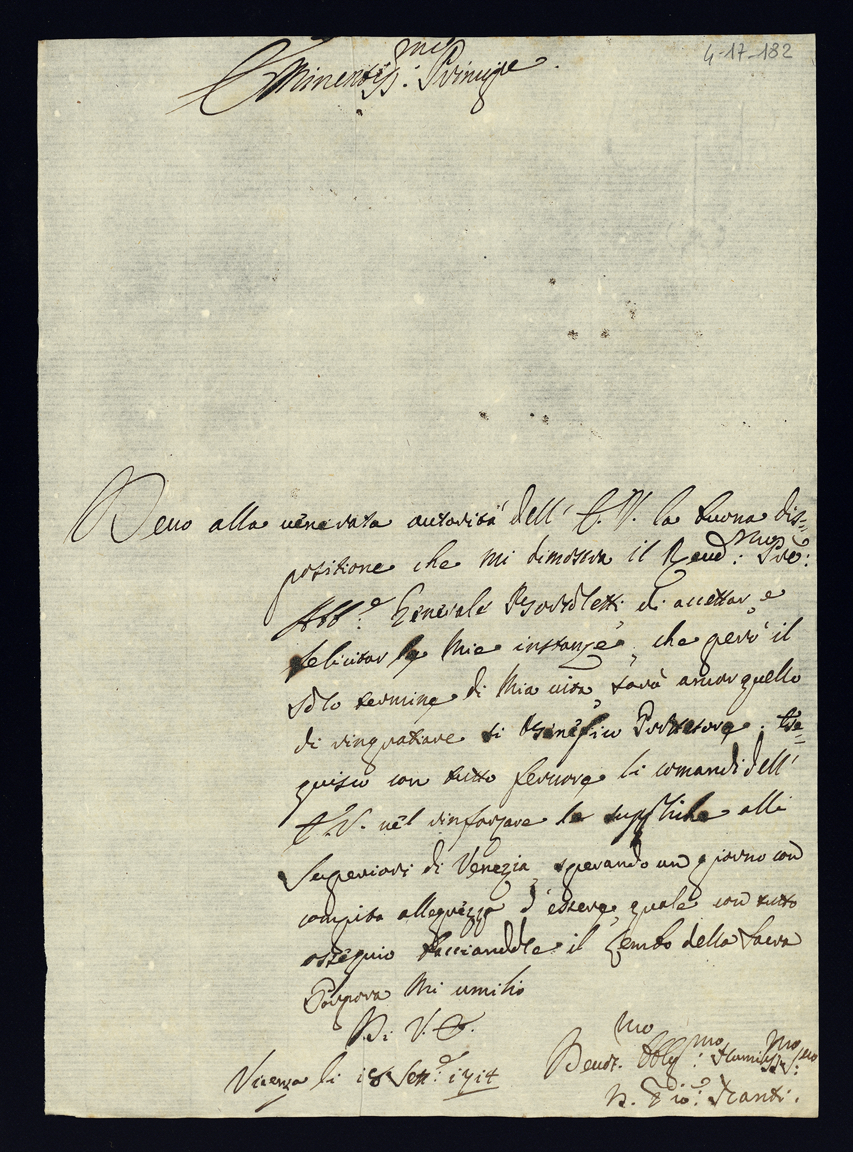 4-17-182
Eminentiss:mo Principe.
Devo alla venerata autorità dell' E. V. la buona dis=
positione che mi dimostra il Reud:mo Pre:
Abb:e Generale di accettar, e
felicitar le mie instanze, che però il
solo termine di mia vita sarà ancor quello
di ringratiare si Benefico Protetore. Ese=
guisco con tutto fervore li comandi dell'
E.V. nel rinforzare le suppliche alli
Superiori di Venezia, sperando un giorno con
compita allegrezza d'essere, quale con tutto
ossequio bacciandole il Lembo della Sacra
Porpora mi umilio
Di V. E.
Vicenza li 18 Sett:e 1714
Deuot.mo Obblg:mo Humiliss:mo Ser
D. Gio: